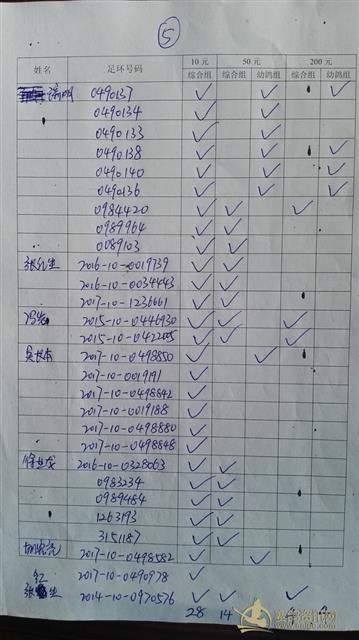 ⑤
姓名 足环号码 10元 50元 200元
综合组 综合组 幼鸽组 综合组 幼鸽组
0490137 ✓ ✓ ✓
0490134 ✓ ✓
0490133 ✓ ✓
0490138 ✓ ✓ ✓
0490140 ✓ ✓ ✓
0490136 ✓ ✓ ✓
0984420 ✓ ✓ ✓
0989964 ✓ ✓
0089103 ✓ ✓
2016-10-0019739 ✓ ✓
2016-10-0034443 ✓ ✓
2017-10-1236661 ✓ ✓
2015-10-0446930 ✓ ✓ ✓
2015-10-0422205 ✓ ✓ ✓
2017-10-0498850 ✓ ✓
2017-10-0019191 ✓
2017-10-0498842 ✓
2017-10-0019188 ✓
2017-10-0498880 ✓
2017-10-0498848 ✓
2016-10-0328063 ✓ ✓
0983234 ✓ ✓
0989484 ✓ ✓
1263193 ✓ ✓
3151187 ✓ ✓
2017-10-0498582 ✓ ✓
2017-10-0490978 ✓
2014-10-0970576 ✓ ✓ ✓
28 14